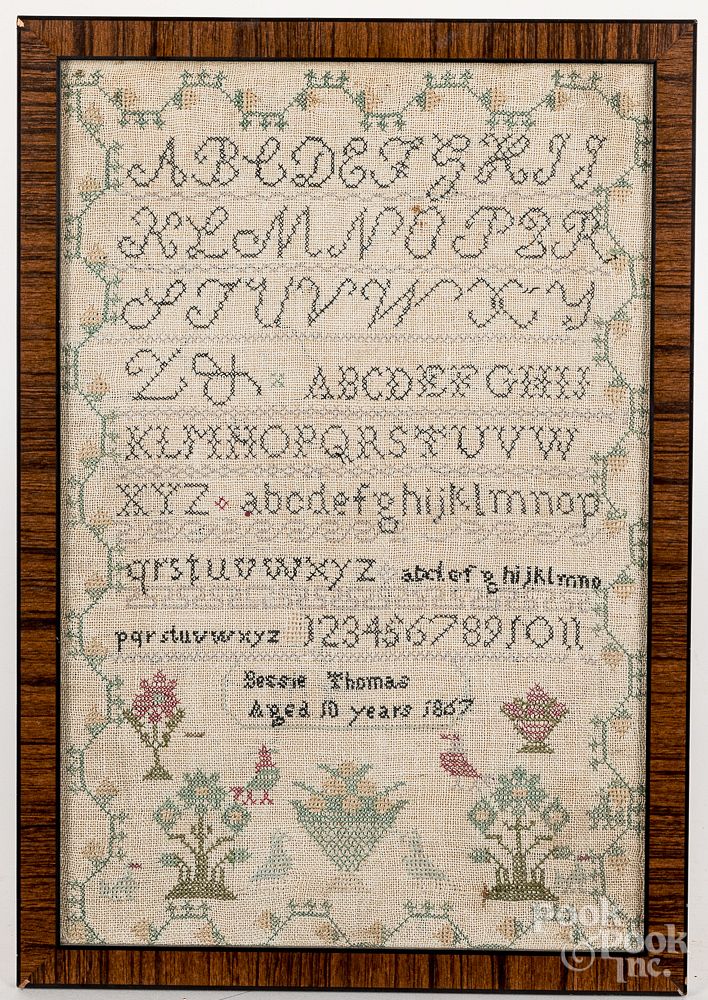 ABCDEFGHIJ
KLMNOPQR
STUVWXY
Z& ABCDEFGHIJ
KLMNOPQRSTUVW
XYZ abcdefghijklmnop
qrstuvwxyz abcdefghijklmno
pqrstuvwxyz 1234567891011
Bessie Thomas
Aged 10 years 1867
Pook
& Pook
Inc.